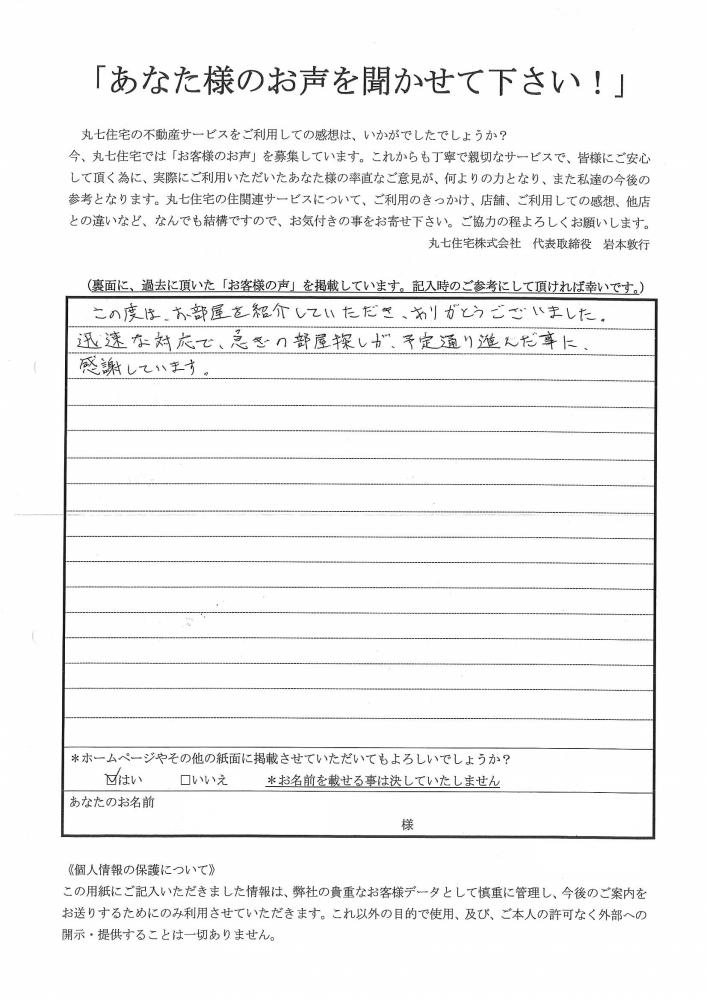 「あなた様のお声を聞かせて下さい！」
丸七住宅の不動産サービスをご利用しての感想は、いかがでしたでしょうか？
今、丸七住宅では「お客様のお声」を募集しています。これからも丁寧で親切なサービスで、皆様にご安心
して頂く為に、実際にご利用いただいたあなた様の率直なご意見が、何よりの力となり、また私達の今後の
参考となります。丸七住宅の住関連サービスについて、ご利用のきっかけ、店舗、ご利用しての感想、他店
との違いなど、なんでも結構ですので、お気付きの事をお寄せ下さい。ご協力の程よろしくお願いします。
丸七住宅株式会社　代表取締役　岩本敦行
（裏面に、過去に頂いた「お客様の声」を掲載しています。記入時のご参考にして頂ければ幸いです。）
この度は、お部屋を紹介していただき、ありがとうございました。
迅速な対応で、急ぎの部屋探しが、予定通り進んだ事に、
感謝しています。
＊ホームページやその他の紙面に掲載させていただいてもよろしいでしょうか？
☑はい　□いいえ　＊お名前を載せる事は決していたしません
あなたのお名前
様
《個人情報の保護について》
この用紙にご記入いただきました情報は、弊社の貴重なお客様データとして慎重に管理し、今後のご案内を
お送りするためにのみ利用させていただきます。これ以外の目的で使用、及び、ご本人の許可なく外部への
開示・提供することは一切ありません。